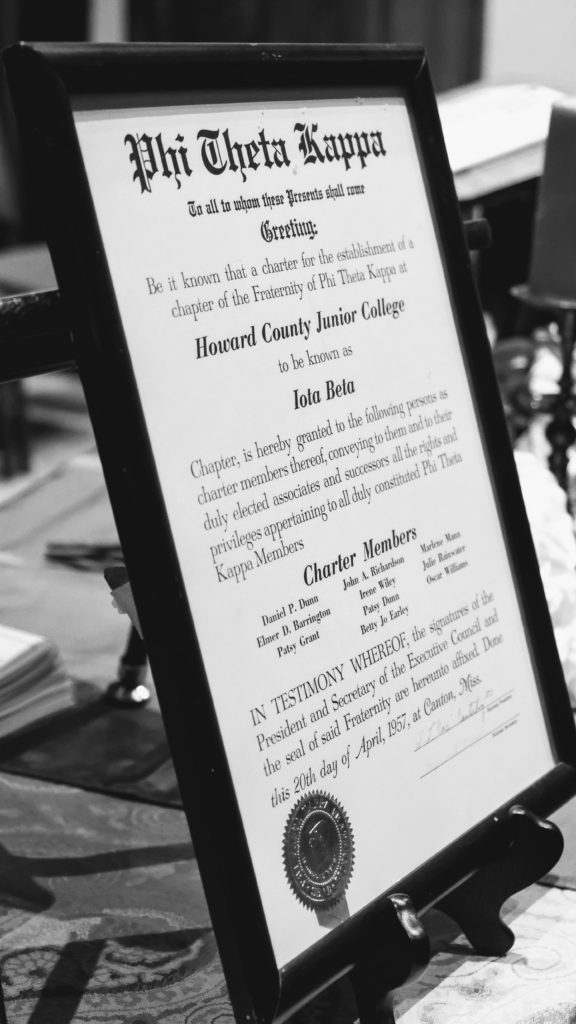 Phi Theta Kappa
To all to whom these Presents shall come
Greeting:
Be it known that a charter for the establishment of a
chapter of the Fraternity of Phi Theta Kappa at
Howard County Junior College
to be known as
Iota Beta
Chapter, is hereby granted to the following persons as
charter members thereof, conveying to them and to their
duly elected associates and successors all the rights and
privileges appertaining to all duly constituted Phi Theta
Kappa Members
Charter Members
Daniel P. Dunn
Elmer D. Barrington
Patsy Grant
John A. Richardson
Irene Wiley
Patsy Dunn
Betty Jo Earley
Marlene Mann
Julie Rainwater
Oscar Williams
IN TESTIMONY WHEREOF, the signatures of the
President and Secretary of the Executive Council and
the seal of said Fraternity are hereunto affixed. Done
this 20th day of April, 1957, at Canton, Miss.